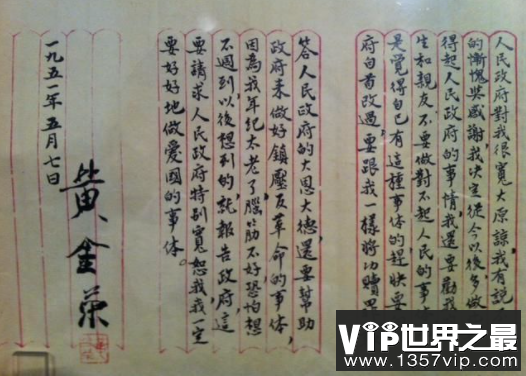 人民政府對我很寬大原諒,我有說
的慚愧與感謝,我决定從今以後多做
得起人民政府的事情,我還要勸我
生和親友不要做對不起人民的事
是覺得自已有這種事体的趕快要
府自首改過,要跟我一樣將功贖
答人民政府的大恩大德,還要幫助
政府来做好鎮壓反革命的事体,
因為我年纪太老了腦筋不好恐怕想
不週到以後想到的就報告政府,這
要請求人民政府特别寬恕我,我一定
要好好地做愛國的事体。
一九五一年五月七日
黄金荣
VIP世界之最
www.1357vip.com